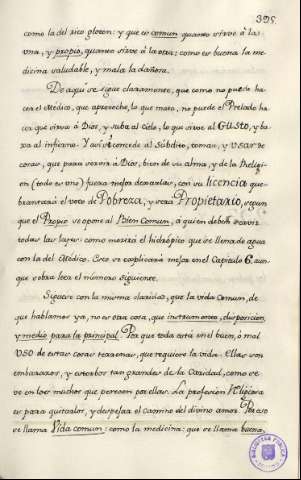 395.
como la del rico gloton: y que es comun quanto sirve à la
una, y propio, quanto sirve à la otra: como es buena la me-
dicina saludable, y mala la dañosa.
De aqui se sigue claramente, que como no puede ha-
cer el Médico, que aproveche, lo que mata, no puede el Prelado ha-
cer que sirva à Dios, y suba al Cielo, lo que sirve al GUSTO, y ba-
xa al infierno. Y assi concede al Súbdito, tomar, y usar de
cosas, que para servir à Dios, bien de su alma, y de la Religi-
on (todo es uno) fuera mejor dexarlas, con su licencia que-
brantará el voto de Pobreza, y será Propietario, segun
que el Propio se opone al Bien Comun, a quien deben servir
todas las leyes: como morirá el hidrópico que se llena de agua
con la del Médico. Esto se explicará mejor en el Capitulo 6, aun-
que sobra leer el número siguiente.
Siguese con la misma claridad, que la vida Comun, de
que hablamos ya, no es otra cosa, que instrumento, disposicion,
y medio para la principal. Por que toda está en el buen, ó mal
uso de estas cosas terrenas, que requiere la vida. Ellas son
embarazos, y estorbos tan grandes de la Caridad, como se
ve en los muchos que perecen por ellas. La profesión Religiosa
es para quitarlos, y despejar el camino del divino amor. Por eso
se llama Vida comun: como la medicina: que se llama buena,
BIBLIOTECA PUBLICA